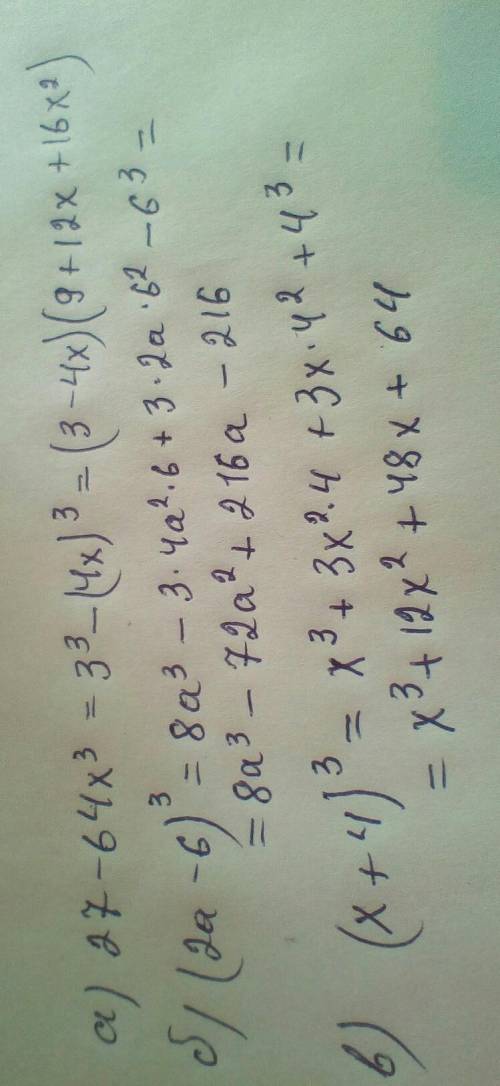 а) 27 - 64x³ = 3³ - (4x)³ = (3 - 4x)(9 + 12x + 16x²)
б) (2a - 6)³ = 8a³ - 3 · 4a² · 6 + 3 · 2a · 6² - 6³ =
= 8a³ - 72a² + 216a - 216
в) (x + 4)³ = x³ + 3x² · 4 + 3x · 4² + 4³ =
= x³ + 12x² + 48x + 64